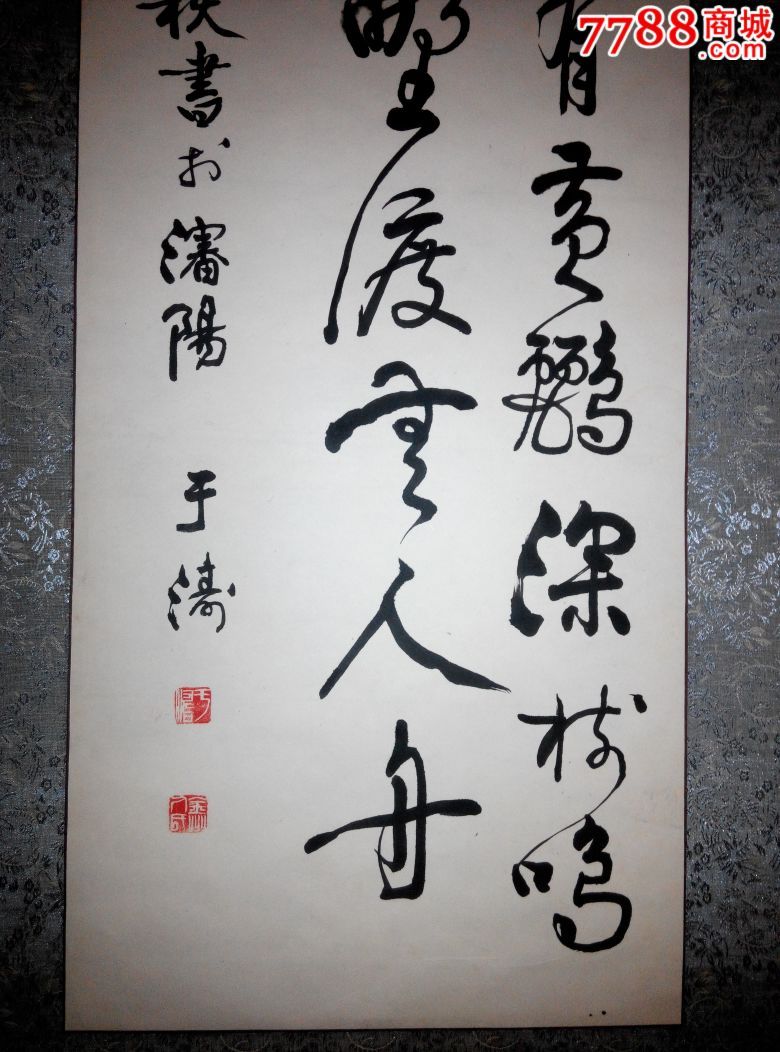 7788商城
.com
有黃鸝深樹鳴
野渡無人舟
秋書於瀋陽 于濤